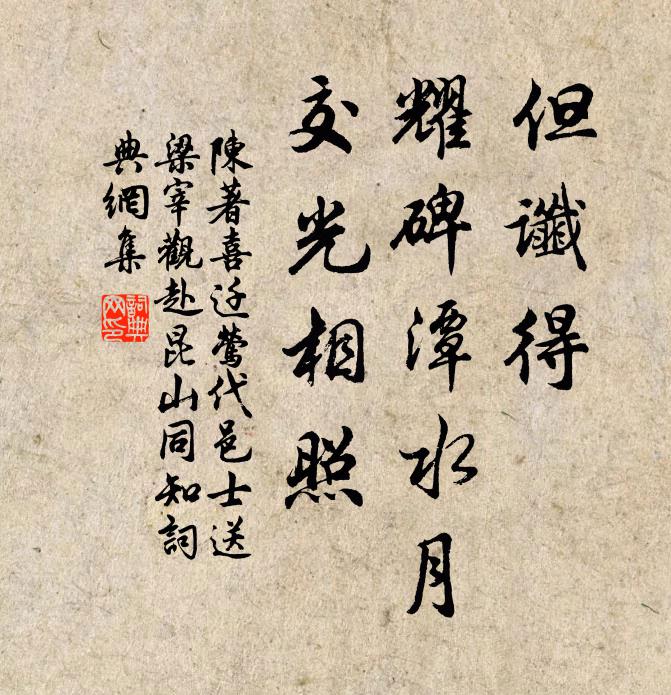 但讖得
耀碑潭水月
交光相照
陳著喜迁鶯代邑士送
梁宰觀赴昆山同知詞
典網集
詞典
网印